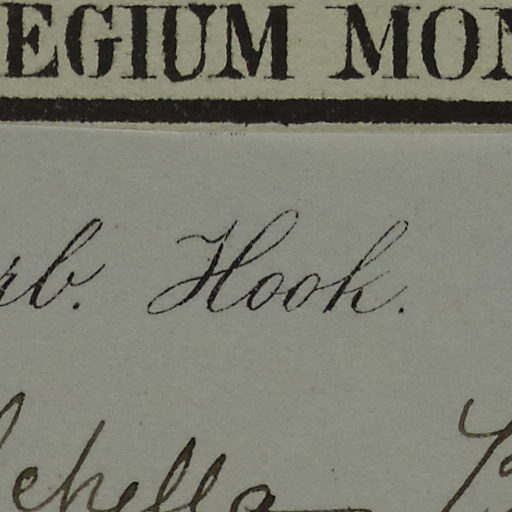 EGIUM MON
rb. Hook.
chella